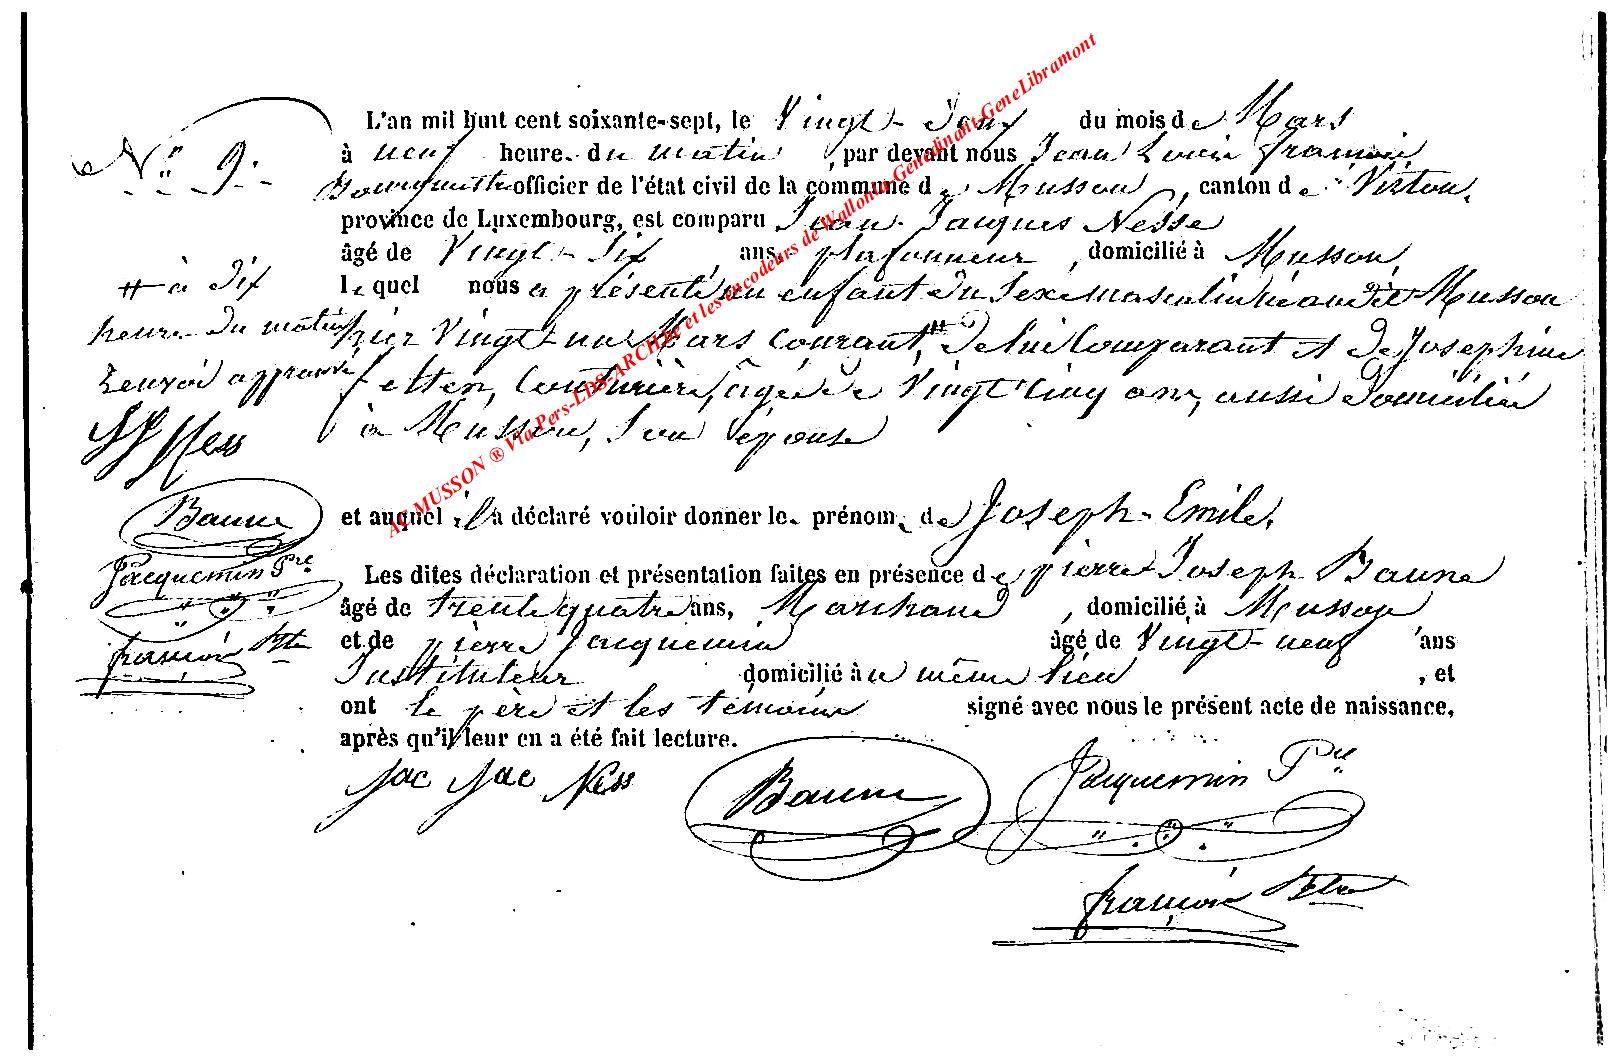 N° 9.
L'an mil huit cent soixante-sept, le Vingt-deux du mois de Mars
à neuf heure. du matin, par devant nous Jean Louis françois
Bourguette officier de l'état civil de la commune de Musson, canton de Virton,
province de Luxembourg, est comparu Jean Jacques Nesse
âgé de Vingt-six ans, plafonneur, domicilié à Musson,
lequel nous a présenté un enfant du sexe masculin né au dit Musson
hier Vingt-un Mars courant, # de lui Comparant et de Josephine
felten, Couturière, âgée de Vingt cinq ans, aussi domiciliée
à Musson, son épouse
# à dix
heure du matin
Renvoi approuvé
JJ Ness
Baune
Jacquemin Pre
françois
et auquel il a déclaré vouloir donner le prénom de Joseph-Emile.
Les dites déclaration et présentation faites en présence de pierre Joseph Baune
âgé de trente quatre ans, Marchand, domicilié à Musson
et de pierre Jacquemin âgé de Vingt-neuf ans
Instituteur domicilié au même lieu, et
ont le père et les témoins signé avec nous le présent acte de naissance,
après qu'il leur en a été fait lecture.
Jac Jac Ness
Baune
Jacquemin Pre
françois
AC MUSSON ® Via Pers-LDS-ARCHBe et les encodeurs de Wallonia-Genedinant-GeneLibramont